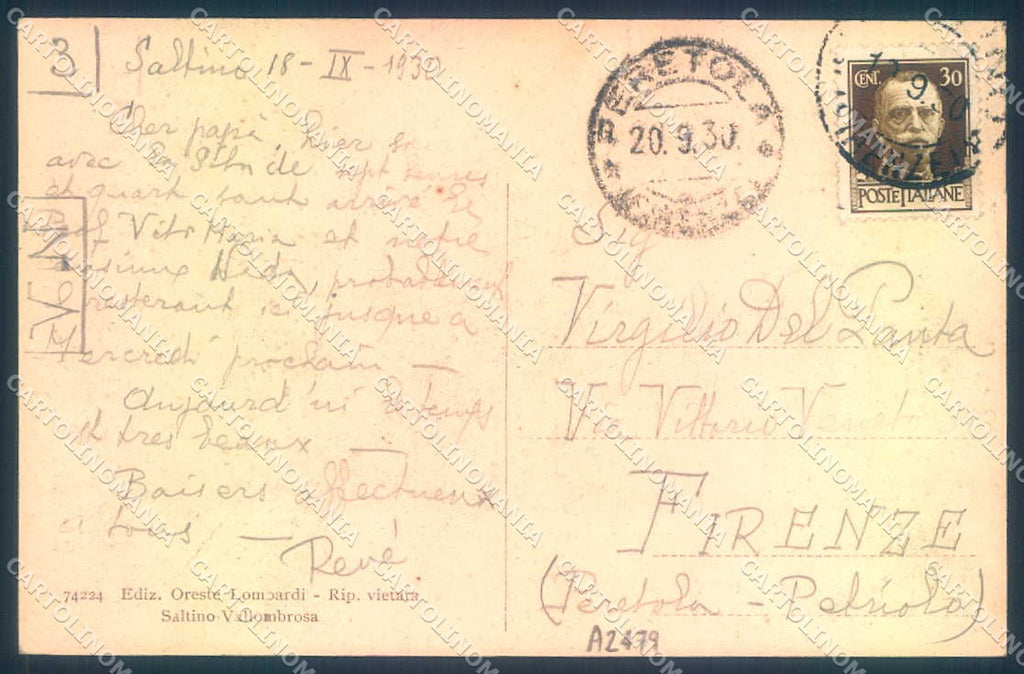 3
Saltino 18-IX-1930
Cher papà, hier
avec de sept heures
et quart sont arrivé le
Prof Vito Maria et notre
probablement
ici jusque a
Mercredi prochain —
Aujourd'ui le temps
et tres beaux —
Baisers affectueux
a tous —
René
V.N.
74224 Ediz. Oreste Lombardi - Rip. vietata
Saltino-Vallombrosa
PERETOLA
20.9.30.
CENT. 30
POSTE ITALIANE
9.30
Sig
Virgilio Del Panta
Via Vittorio Veneto
FIRENZE
(Peretola - Petriolo)
A2479
CARTOLINOMANIA